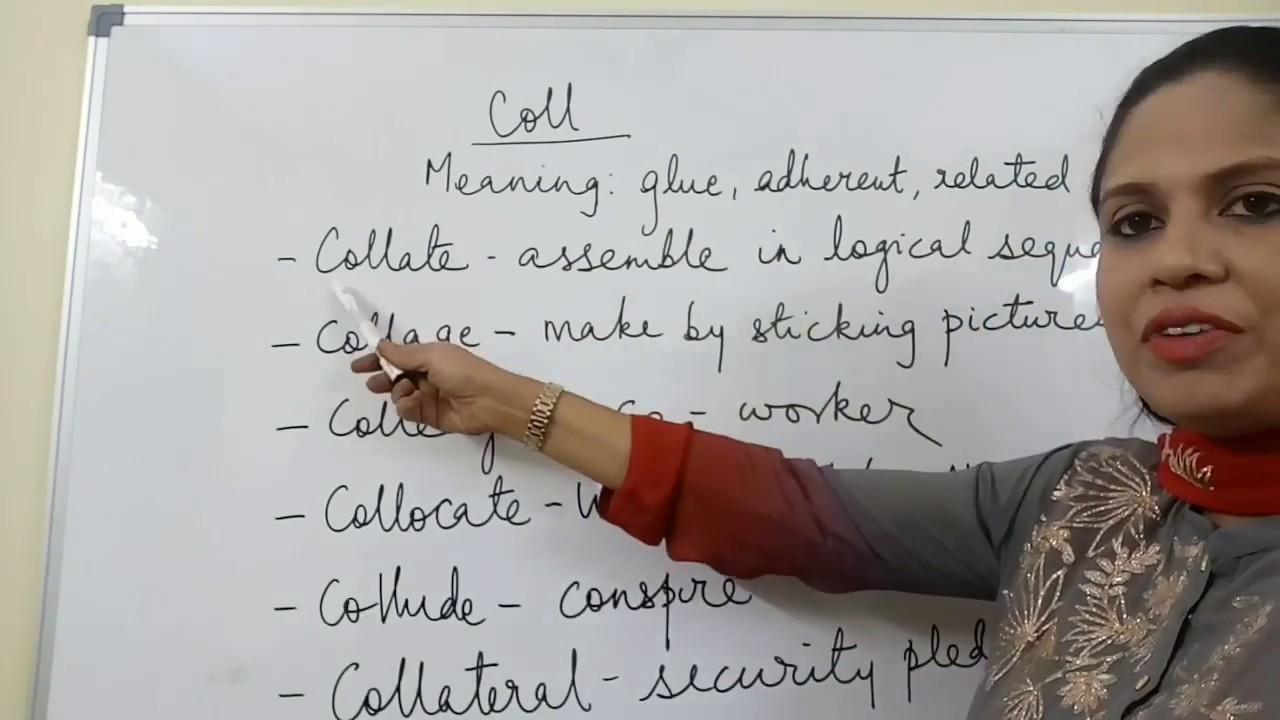 Coll
Meaning: glue, adherent, related
- Collate - assemble in logical
- Collage - make by sticking
- co - worker
- Collocate -
- Collude - conspire
- Collateral - security